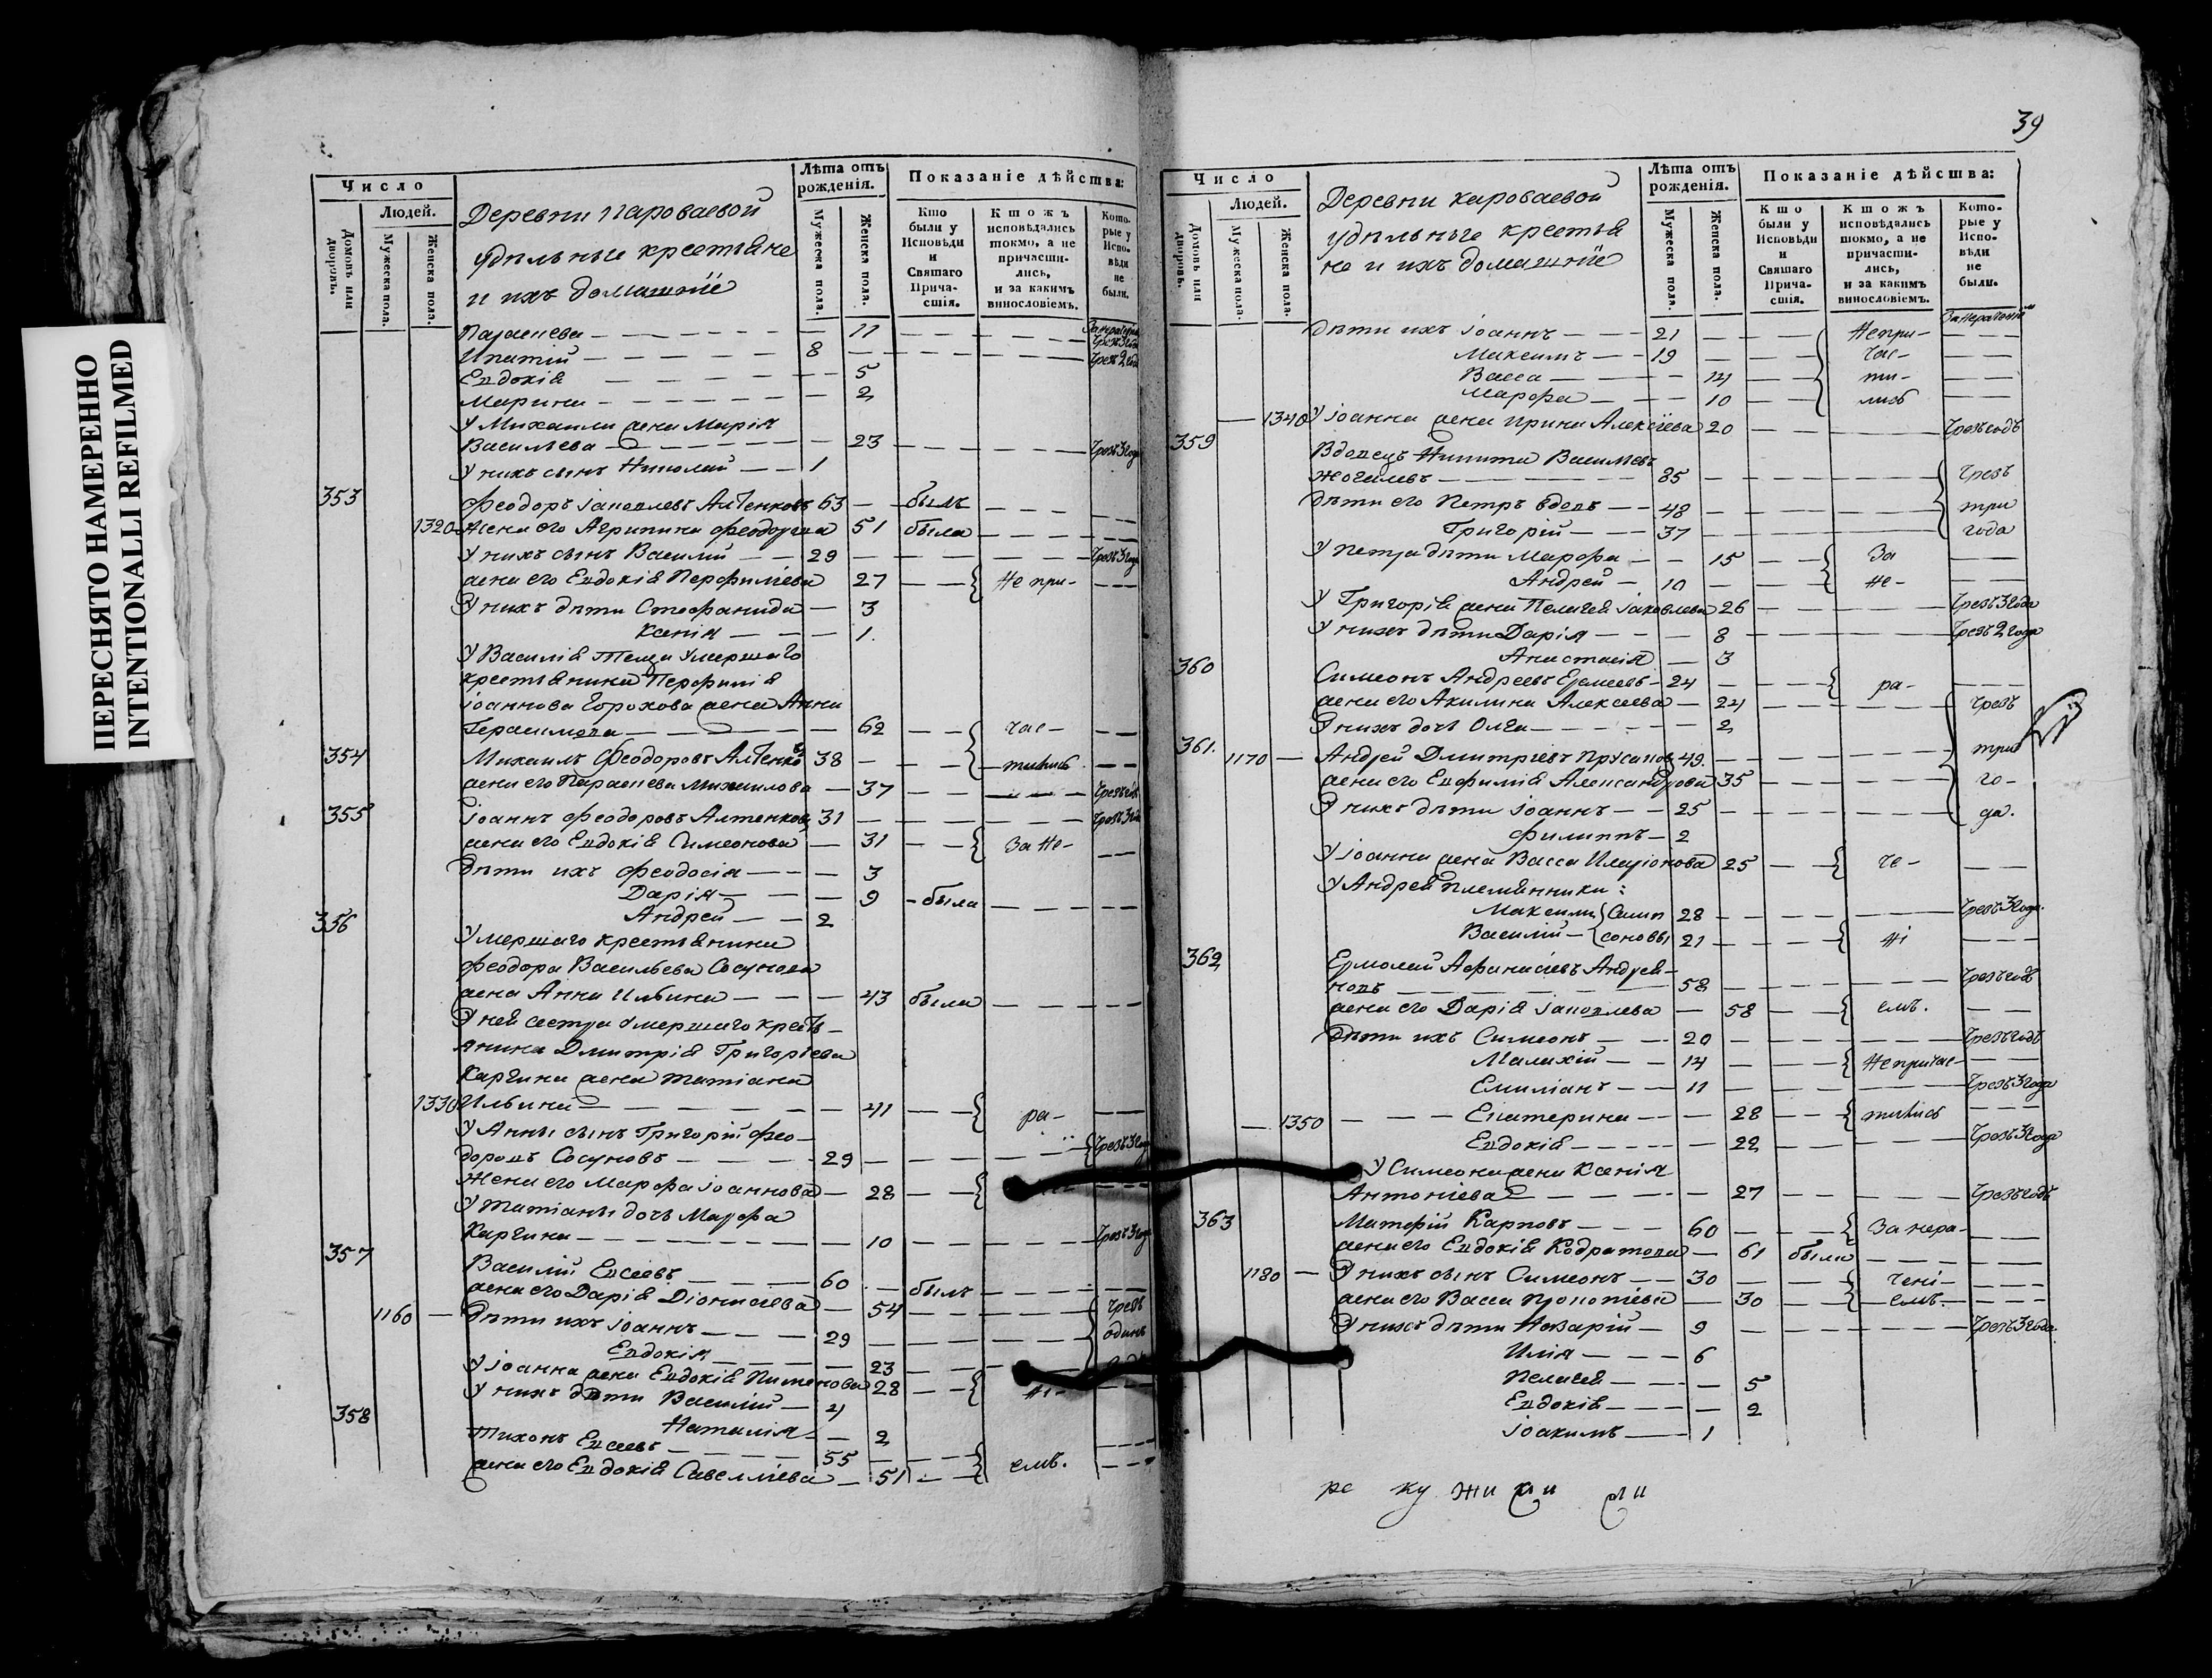 ПЕРЕСНЯТО НАМЕРЕННО
INTENTIONALLI REFILMED
Число
Людей.
Домовъ или дворовъ.
Мужеска пола.
Женска пола.
Деревни Караваевой
удѣльные крестьяне
и ихъ домашніе
Лѣта отъ рожденія.
Мужеска пола.
Женска пола.
Показаніе дѣйства:
Кто были у Исповѣди и Святаго Причастія.
Ктожъ исповѣдались токмо, а не причастились, и за какимъ винословіемъ.
Которые у Исповѣди не были.
Параскева — 11 чрезъ 3 года
Ипатій — 8 чрезъ 2 года
Евдокія — 5
Марина — 2
У Михаила жена Марія
Васильева — 23 чрезъ 3 года
У нихъ сынъ Николай — 1
353 Феодоръ Іаковлевъ Алтенковъ 63 — былъ
1320 Жена его Агрипина Феодорова 51 была
У нихъ сынъ Василій — 29 чрезъ 3 года
жена его Евдокія Перфиліева 27 — не при-
У нихъ дѣти Стефанида — 3
Ксенія — 1.
У Василія теща умершаго
крестьянина Перфилія
Іоаннова Горохова жена Анна
Герасимова — 62 — час-
354 Михаилъ Феодоровъ Алтенко 38 — тились
жена его Параскева Михаилова — 37 — чрезъ годъ
355 Іоаннъ Феодоровъ Алтенковъ 31 — чрезъ 3 года
жена его Евдокія Симеонова — 31 — за не-
Дѣти ихъ Феодосія — 3
Дарія — 9 — была
Андрей — 2
356 Умершаго крестьянина
Феодора Васильева Сосунова
жена Анна Ильина — 43 была
У ней сестра умершаго кресть-
янина Дмитрія Григоріева
Каргина жена Татіана
1330 Ильина — 41 — ра-
У Анны сынъ Григорій Фео-
доровъ Сосуновъ — 29 — чрезъ 3 года
Жена его Марфа Іоаннова — 28
У Татіаны дочь Марфа
Каргина — 10 — чрезъ 3 года
357 Василій Евсеевъ — 60 — былъ
жена его Дарія Діонисіева — 54 — чрезъ
1160 — Дѣти ихъ Іоаннъ — 29 — одинъ
Евдокія — 23
У Іоанна жена Евдокія Пименова 28 — ні-
У нихъ дѣти Василій — 4
Наталія — 2
358 Тихонъ Евсеевъ — 55
жена его Евдокія Савелліева — 51 — емъ.
39
Число
Людей.
Домовъ или дворовъ.
Мужеска пола.
Женска пола.
Деревни Караваевой
удѣльные крестья
не и ихъ домашніе
Лѣта отъ рожденія.
Мужеска пола.
Женска пола.
Показаніе дѣйства:
Кто были у Исповѣди и Святаго Причастія.
Ктожъ исповѣдались токмо, а не причастились, и за какимъ винословіемъ.
Которые у Исповѣди не были.
За нераченіемъ
Дѣти ихъ Іоаннъ — 21 — Непри-
Максимъ — 19 — час-
Васса — 14 — ти-
Марфа — 10 — лись
— 1340 У Іоанна жена Ирина Алексіева 20 — чрезъ годъ
359 Вдовецъ Никита Васильевъ
Жогалевъ — 85 — чрезъ
Дѣти его Петръ вдовъ — 48 — три
Григорій — 37 — года
У Петра дѣти Марфа — 15 — За
Андрей — 10 — не-
У Григорія жена Пелагея Іаковлева 26 — чрезъ 3 года
У нихъ дѣти Дарія — 8 — чрезъ 2 года
Анастасія — 3
360 Симеонъ Андреевъ Еремеевъ — 24 — ра-
жена его Акилина Алексеева — 24 — чрезъ
У нихъ дочь Ольга — 2
361. 1170 — Андрей Дмитріевъ Прусаков 49. — три
жена его Евфимія Александрова 35 — го-
У нихъ дѣти Іоаннъ — 25 — да.
Филиппъ — 2
У Іоанна жена Васса Иларіонова 25 — че-
У Андрея племянники:
Максимъ Самп 28 — чрезъ 3 года.
Василій — соновы 21 — ні
362 Ермолай Афанасіевъ Андрея-
новъ — 58 — чрезъ годъ
жена его Дарія Іаковлева — 58 — емъ.
Дѣти ихъ Симеонъ — 20 — чрезъ годъ
Малахій — 14 — Непричас-
Емиліанъ — 11 — чрезъ 3 года
— 1350 — Екатерина — 28 — тились
Евдокія — 22 — чрезъ 3 года
У Симеона жена Ксенія
Антоніева — 27 — чрезъ годъ
363 Матфій Карповъ — 60 — За нера-
жена его Евдокія Кодратова — 61 была
1180 — У нихъ сынъ Симеонъ — 30 — чені-
жена его Васса Прокопіева — 30 — емъ.
У нихъ дѣти Назарій — 9 — чрезъ 3 года.
Илія — 6
Пелагея — 5
Евдокія — 2
Іоакимъ — 1
ре ку жи ци ми